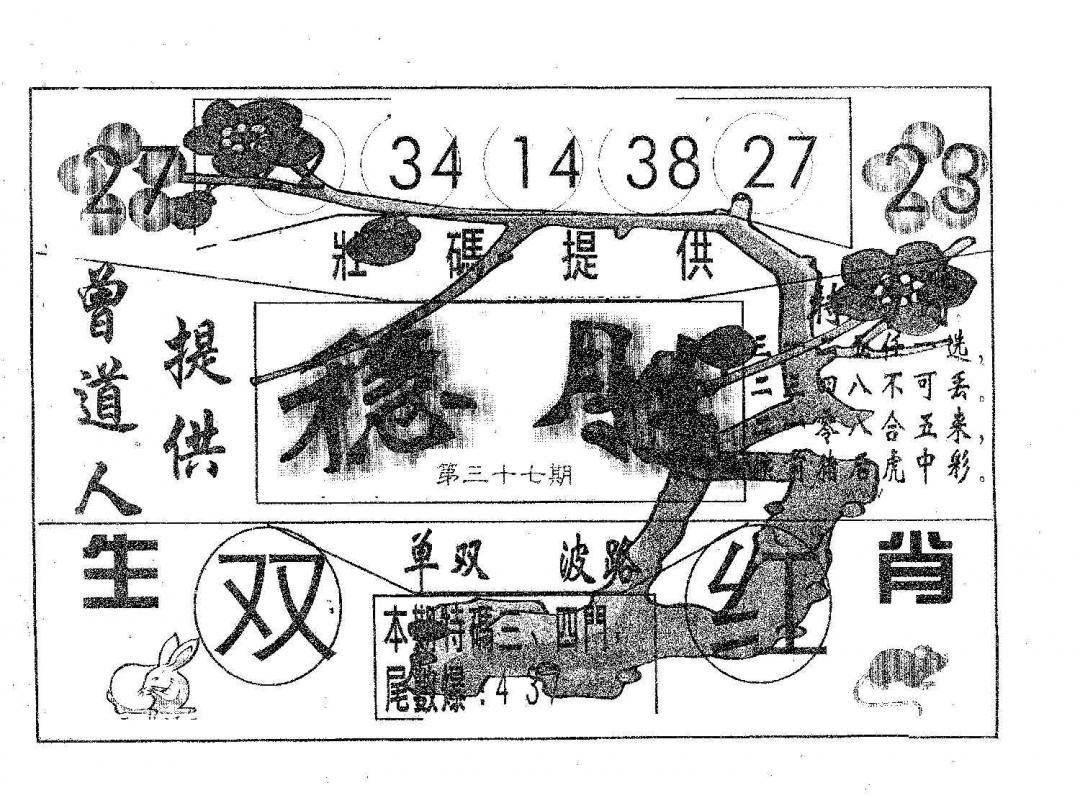 27
34 14 38 27
23
壯碼提供
曾道人
提供
特
稳胜
第三十七期
仔一选，
四八不可丢。
零八合五来，
猪后虎中彩。
生
双
单双 波路
红
肖
本期特碼三、四門，
尾數爆:4 3